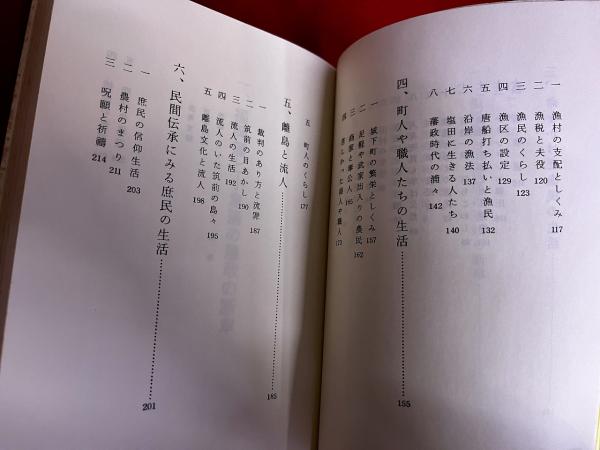 一　漁村の支配としくみ 117
二　漁税と夫役 120
三　漁民のくらし 123
四　漁区の設定 129
五　唐船打ち払いと漁民 132
六　沿岸の漁法 137
七　塩田に生きる人たち 140
八　藩政時代の浦々 142
四、町人や職人たちの生活 155
一　城下町の繁栄としくみ 157
二　足軽や武家出入りの農民 162
三　商家と奉公人 165
四　商人や職人 173
五　町人のくらし 177
五、離島と流人 185
一　裁判のあり方と流罪 187
二　筑前の目あかし 190
三　流人の生活 192
四　流人のいた筑前の島々 195
五　離島文化と流人 198
六、民間伝承にみる庶民の生活 201
一　庶民の信仰生活 203
二　農村のまつり 211
三　呪願と祈禱 214